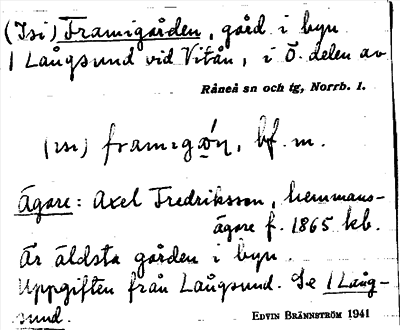 (Isi) Framigården, gård i byn
1 Långsund vid Vitån, i Ö. delen av
Råneå sn och tg, Norrb. l.
(ısı) framıgǻn, bf. m.
Ägare: Axel Fredriksson, hemmans-
ägare f. 1865 kb.
Är äldsta gården i byn.
Uppgiften från Långsund. Se 1 Lång-
sund.
EDVIN BRÄNNSTRÖM 1941